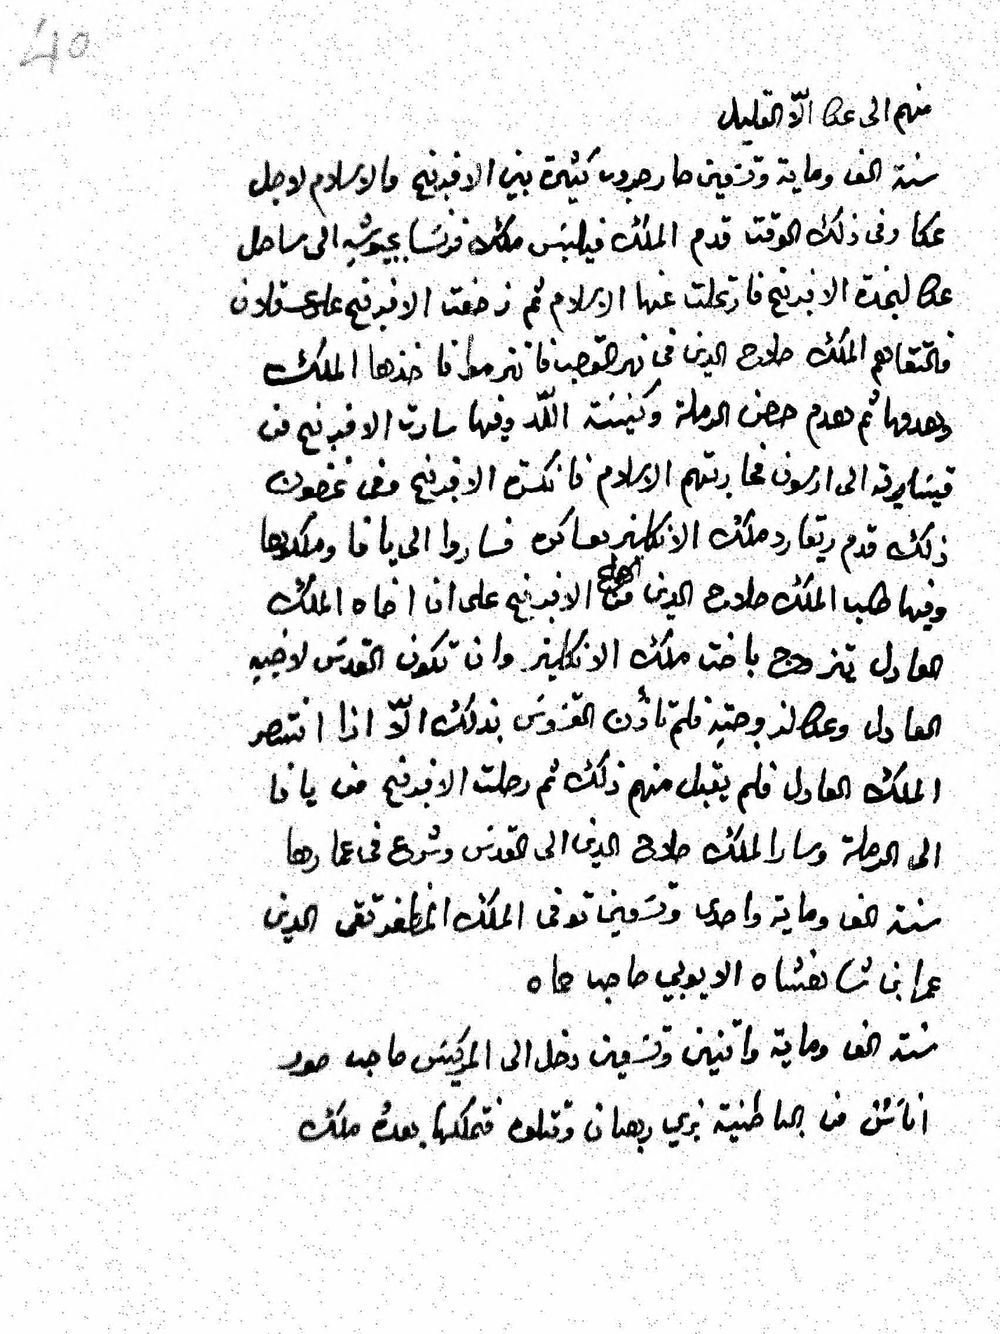 40
منهم الى عكا الّا القليل
سنة الف وماية وتسعين صار حروب كثيرة بين الافرنج والاسلام لاجل
عكا وفى ذلك الوقت قدم الملك فيلبس ملك فرنسا بجيوشه الى ساحل
عكا لنجدة الافرنج فارتحلت عنها الاسلام ثم زحفت الافرنج على عسقلان
فالتقاهم الملك صلاح الدين فى نهر القصب فانهزموا فاخذها الملك
وهدمها ثم هدم حصن الرملة وكنيسة اللّد وفيها سارت الافرنج من
قيسارية الى ارسون فحاربتهم الاسلام فانكسرة الافرنج وفى غضون
ذلك قدم ريتقارد ملك الانكليز بعساكره فساروا الى يافا وملكوها
وفيها طلب الملك صلاح الدين الصلح مع الافرنج على ان اخاه الملك
العادل يتزوج باخت ملك الانكليز وان تكون القدس لاخيه
العادل وعكا لزوجته فلم تأذن القسوس بذلك الّا اذا انتصر
الملك العادل فلم يقبل منهم ذلك ثم رحلت الافرنج من يافا
الى الرملة وسار الملك صلاح الدين الى القدس وشرع فى عمارها
سنة الف وماية واحدى وتسعين توفى الملك المظفر تقى الدين
عمر ابن شاهنشاه الايوبي صاحب حماه
سنة الف وماية واثنين وتسعين دخل الى المركيس صاحب صور
اناس من الباطنية بزي رهبان وقتلوه فتملكها بعده ملك